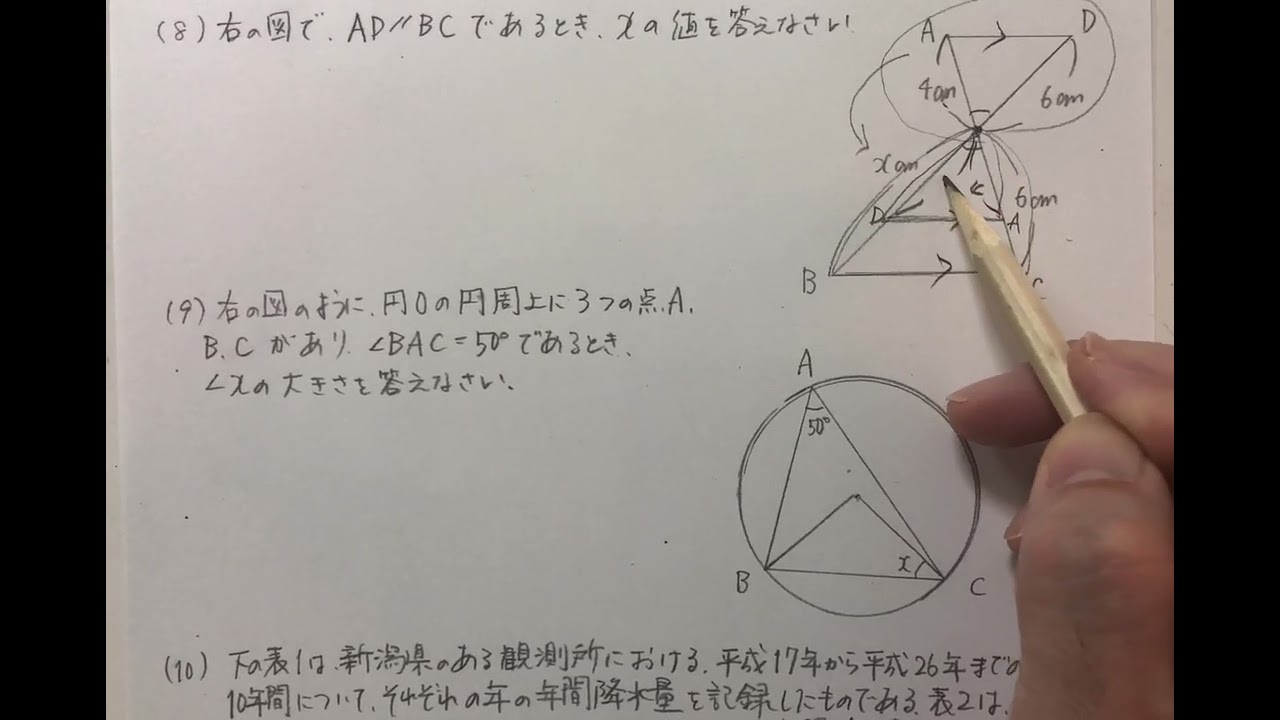 (8) 右の図で、AD//BCであるとき、xの値を答えなさい
A
D
4cm
6cm
xcm
6cm
D
A
B
C
(9) 右の図のように、円Oの円周上に3つの点A,
B, Cがあり、∠BAC=50°であるとき、
∠xの大きさを答えなさい。
A
50°
x
B
C
(10) 下の表1は、新潟県のある観測所における、平成17年から平成26年まで
10年間について、それぞれの年の年間降水量を記録したものである。表2は、